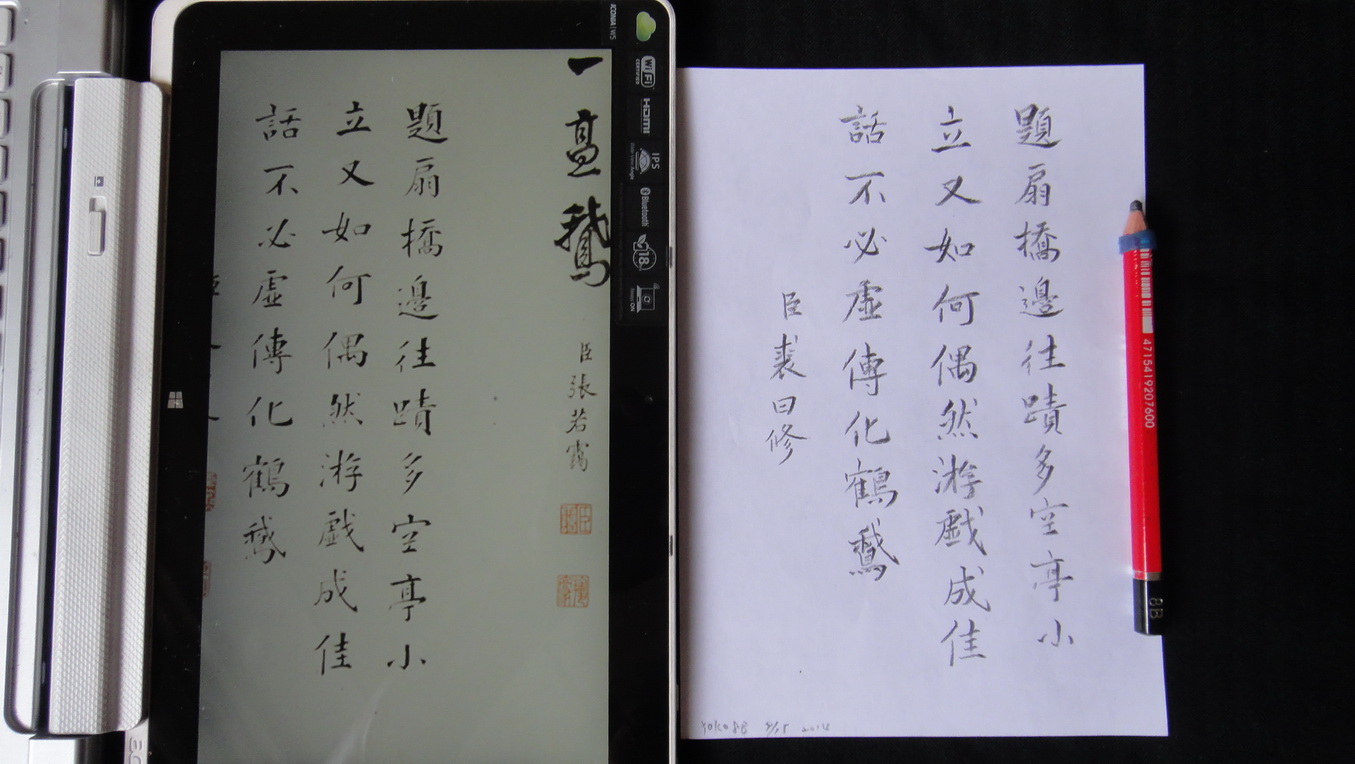 ICONIA W5
Wi Fi
CERTIFIED
HDMI
IPS
Bluetooth
臣張若靄
題扇橋邊往蹟多空亭小
立又如何偶然游戲成佳
話不必虛傳化鶴鵞
題扇橋邊往蹟多空亭小
立又如何偶然游戲成佳
話不必虛傳化鶴鵞
臣裘曰修
4715419207600
8B